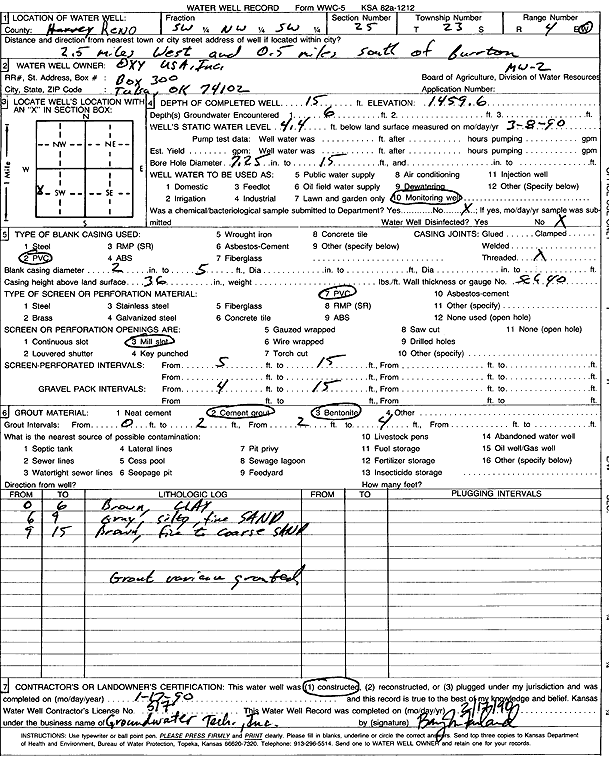 WATER WELL RECORD Form WWC-5 KSA 82a-1212
1 LOCATION OF WATER WELL: Fraction Section Number Township Number Range Number
County: Harvey Reno SW ¼ NW ¼ SW ¼ 25 T 23 S R 4 E/W
Distance and direction from nearest town or city street address of well if located within city?
2.5 miles West and 0.5 miles south of Burrton
2 WATER WELL OWNER: OXY USA, Inc. MW-2
RR#, St. Address, Box # : Box 300 Board of Agriculture, Division of Water Resources
City, State, ZIP Code : Tulsa, OK 74102 Application Number:
3 LOCATE WELL'S LOCATION WITH AN "X" IN SECTION BOX:
N
NW NE
W E
X SW SE
S
1 Mile
4 DEPTH OF COMPLETED WELL 15 ft. ELEVATION: 1459.6
Depth(s) Groundwater Encountered 1. 6 ft. 2. ft. 3. ft.
WELL'S STATIC WATER LEVEL 4.4 ft. below land surface measured on mo/day/yr 3-8-90
Pump test data: Well water was ft. after hours pumping gpm
Est. Yield gpm: Well water was ft. after hours pumping gpm
Bore Hole Diameter 7.25 in. to 15 ft., and in. to ft.
WELL WATER TO BE USED AS: 5 Public water supply 8 Air conditioning 11 Injection well
1 Domestic 3 Feedlot 6 Oil field water supply 9 Dewatering 12 Other (Specify below)
2 Irrigation 4 Industrial 7 Lawn and garden only 10 Monitoring well
Was a chemical/bacteriological sample submitted to Department? Yes No X; If yes, mo/day/yr sample was submitted Water Well Disinfected? Yes No X
5 TYPE OF BLANK CASING USED: 5 Wrought iron 8 Concrete tile CASING JOINTS: Glued Clamped
1 Steel 3 RMP (SR) 6 Asbestos-Cement 9 Other (specify below) Welded
2 PVC 4 ABS 7 Fiberglass Threaded X
Blank casing diameter 2 in. to 5 ft., Dia in. to ft., Dia in. to ft.
Casing height above land surface 36 in., weight lbs./ft. Wall thickness or gauge No. SC 40
TYPE OF SCREEN OR PERFORATION MATERIAL: 7 PVC 10 Asbestos-cement
1 Steel 3 Stainless steel 5 Fiberglass 8 RMP (SR) 11 Other (specify)
2 Brass 4 Galvanized steel 6 Concrete tile 9 ABS 12 None used (open hole)
SCREEN OR PERFORATION OPENINGS ARE: 5 Gauzed wrapped 8 Saw cut 11 None (open hole)
1 Continuous slot 3 Mill slot 6 Wire wrapped 9 Drilled holes
2 Louvered shutter 4 Key punched 7 Torch cut 10 Other (specify)
SCREEN-PERFORATED INTERVALS: From 5 ft. to 15 ft., From ft. to ft.
From ft. to ft., From ft. to ft.
GRAVEL PACK INTERVALS: From 4 ft. to 15 ft., From ft. to ft.
From ft. to ft., From ft. to ft.
6 GROUT MATERIAL: 1 Neat cement 2 Cement grout 3 Bentonite 4 Other
Grout Intervals: From 0 ft. to 2 ft., From 2 ft. to 4 ft., From ft. to ft.
What is the nearest source of possible contamination: 10 Livestock pens 14 Abandoned water well
1 Septic tank 4 Lateral lines 7 Pit privy 11 Fuel storage 15 Oil well/Gas well
2 Sewer lines 5 Cess pool 8 Sewage lagoon 12 Fertilizer storage 16 Other (specify below)
3 Watertight sewer lines 6 Seepage pit 9 Feedyard 13 Insecticide storage
Direction from well? How many feet?
FROM TO LITHOLOGIC LOG FROM TO PLUGGING INTERVALS
0 6 Brown, CLAY
6 9 Gray, silty, fine SAND
9 15 Brown, fine to coarse SAND
Grout variance granted
7 CONTRACTOR'S OR LANDOWNER'S CERTIFICATION: This water well was (1) constructed, (2) reconstructed, or (3) plugged under my jurisdiction and was
completed on (mo/day/year) 1-17-90 and this record is true to the best of my knowledge and belief. Kansas
Water Well Contractor's License No. This Water Well Record was completed on (mo/day/yr)
under the business name of Groundwater Tech., Inc. by (signature)
INSTRUCTIONS: Use typewriter or ball point pen. PLEASE PRESS FIRMLY and PRINT clearly. Please fill in blanks, underline or circle the correct answers. Send top three copies to Kansas Department
of Health and Environment, Bureau of Water Protection, Topeka, Kansas 66620-7320. Telephone: 913-296-5514. Send one to WATER WELL OWNER and retain one for your records.